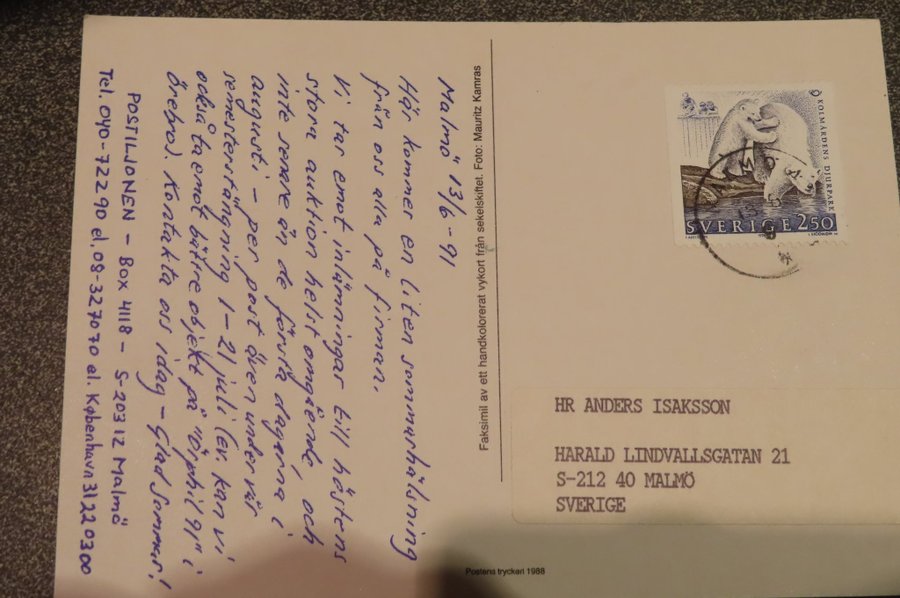 Malmö 13/6-91
Här kommer en liten sommarhälsning
från oss alla på firman.
Vi tar emot inlämningar till höstens
stora auktion helst omgående, och
inte senare än de första dagarna i
augusti - per post även under vår
semesterstängning 1-21 juli (ev. kan vi
också ta emot bättre objekt på "Örphil 91" i
Örebro). Kontakta oss idag - Glad Sommar!
POSTILJONEN - BOX 4118 - S-20312 Malmö
Tel. 040-72290 el. 08-327070 al. København 31220300
Faksimil av ett handkolorerat vykort från sekelskiftet. Foto: Mauritz Kamras
KOLMÅRDENS DJURPARK
SVERIGE 250
HR ANDERS ISAKSSON
HARALD LINDVALLSGATAN 21
S-212 40 MALMÖ
SVERIGE
Postens tryckeri 1988